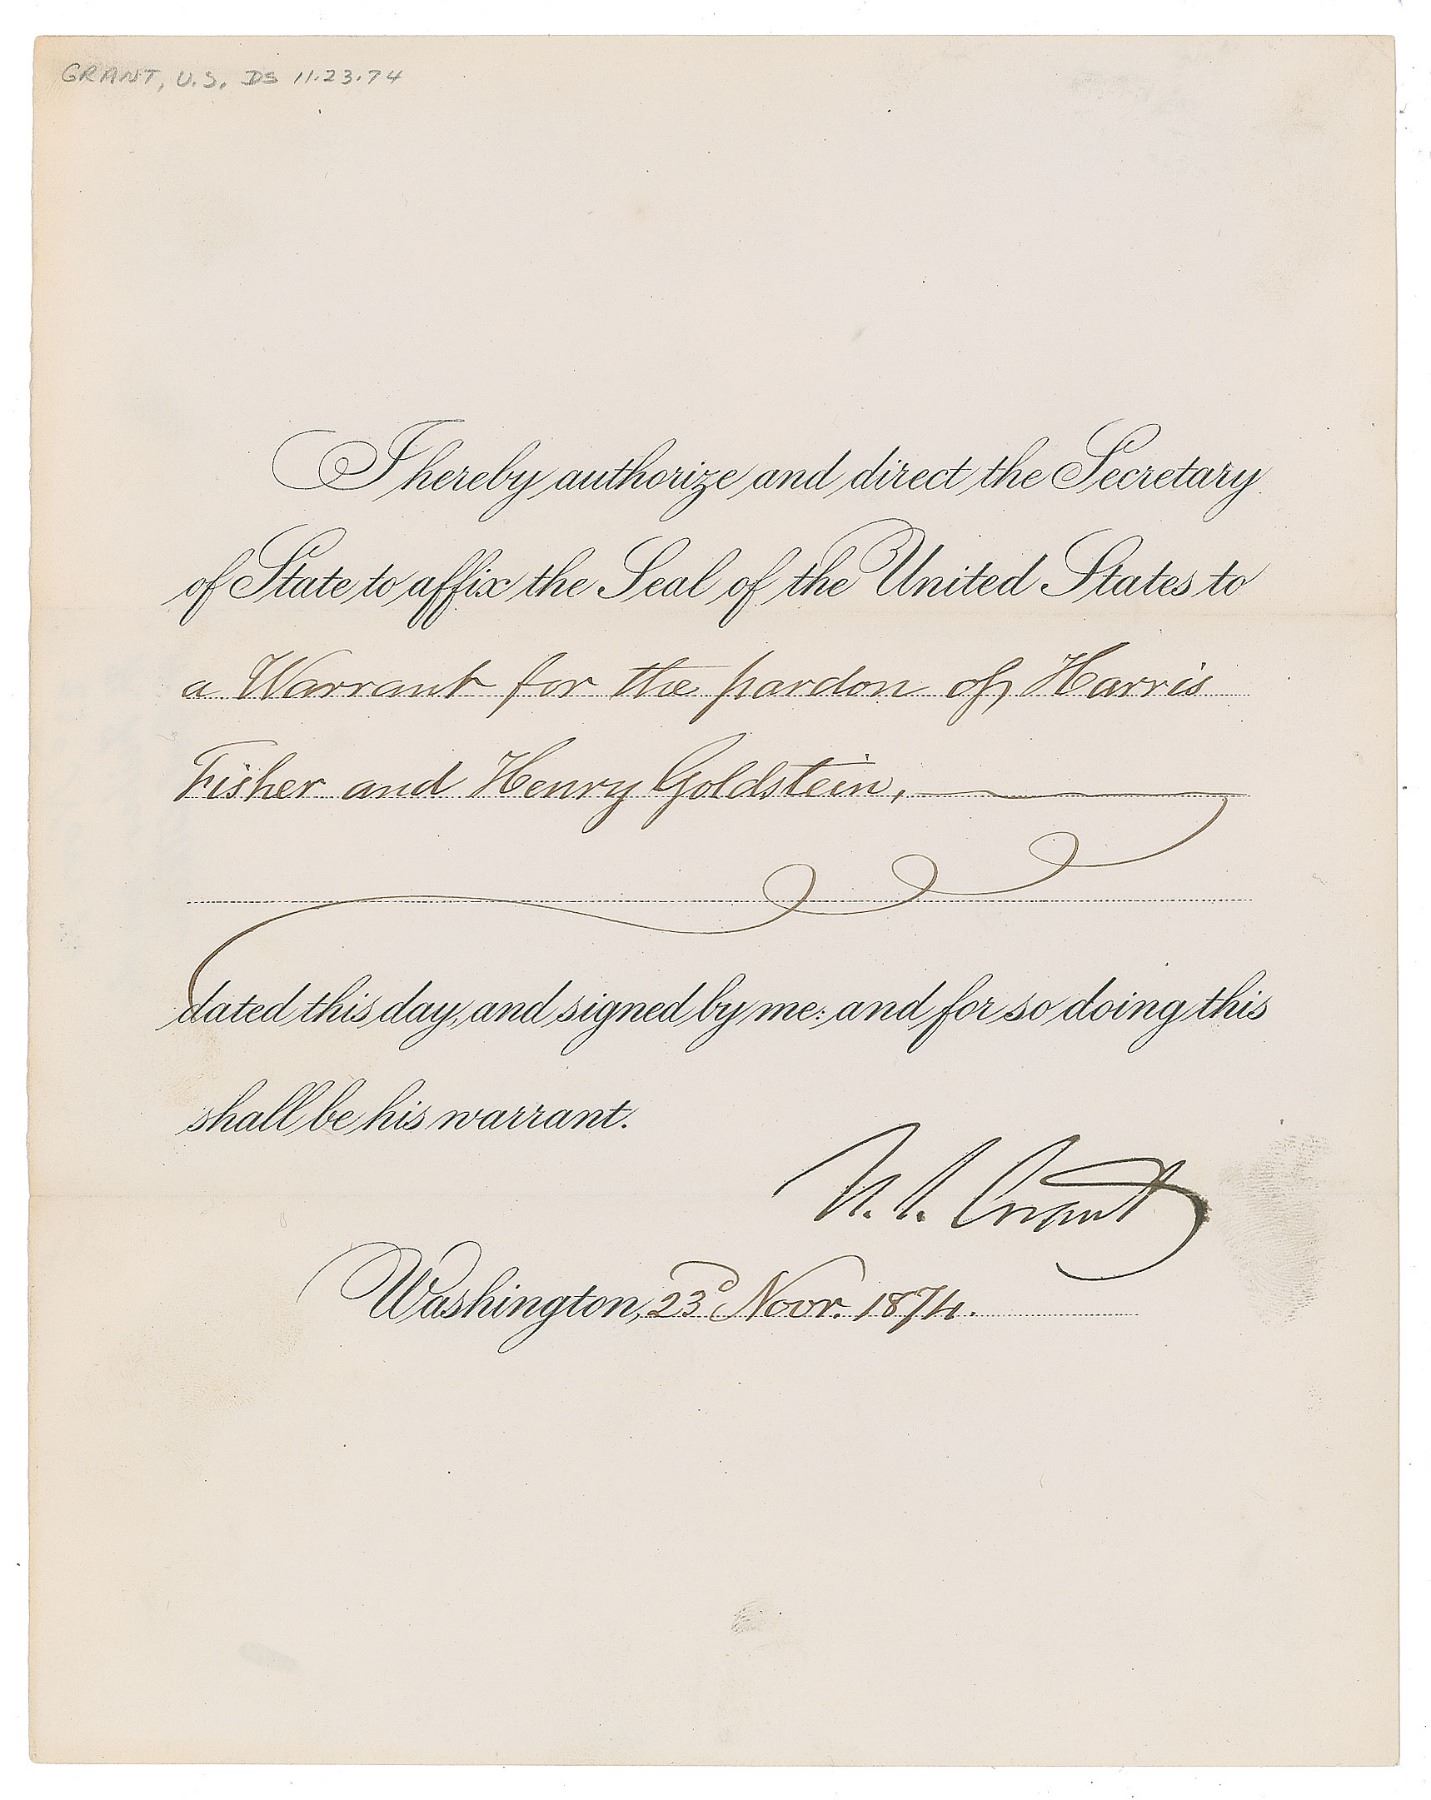 GRANT, U.S. DS 11.23.74
I hereby authorize and direct the Secretary
of State to affix the Seal of the United States to
a Warrant for the pardon of Harris
Fisher and Henry Goldstein,
dated this day, and signed by me: and for so doing this
shall be his warrant.
U. S. Grant
Washington, 23d Novr. 1874.